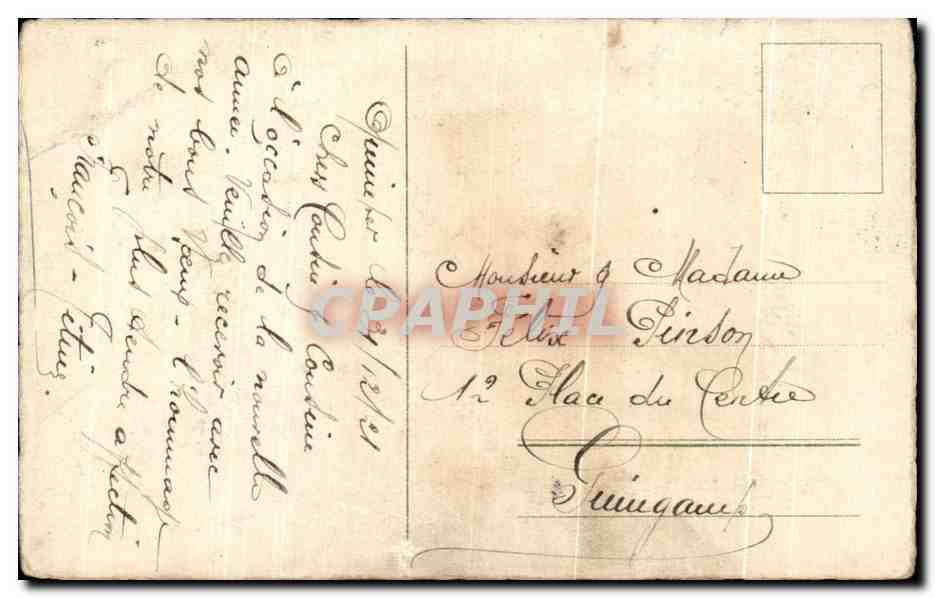 Quimper le 31/12/21
Chers Cousin & Cousine
à l'occasion de la nouvelle
année. Veuillez recevoir avec
nos bons vœux - l'hommage
de notre
& plus tendre affection
François -
Monsieur & Madame
Félix Pinson
12 Place du Centre
Guingamp
CPAPHIL